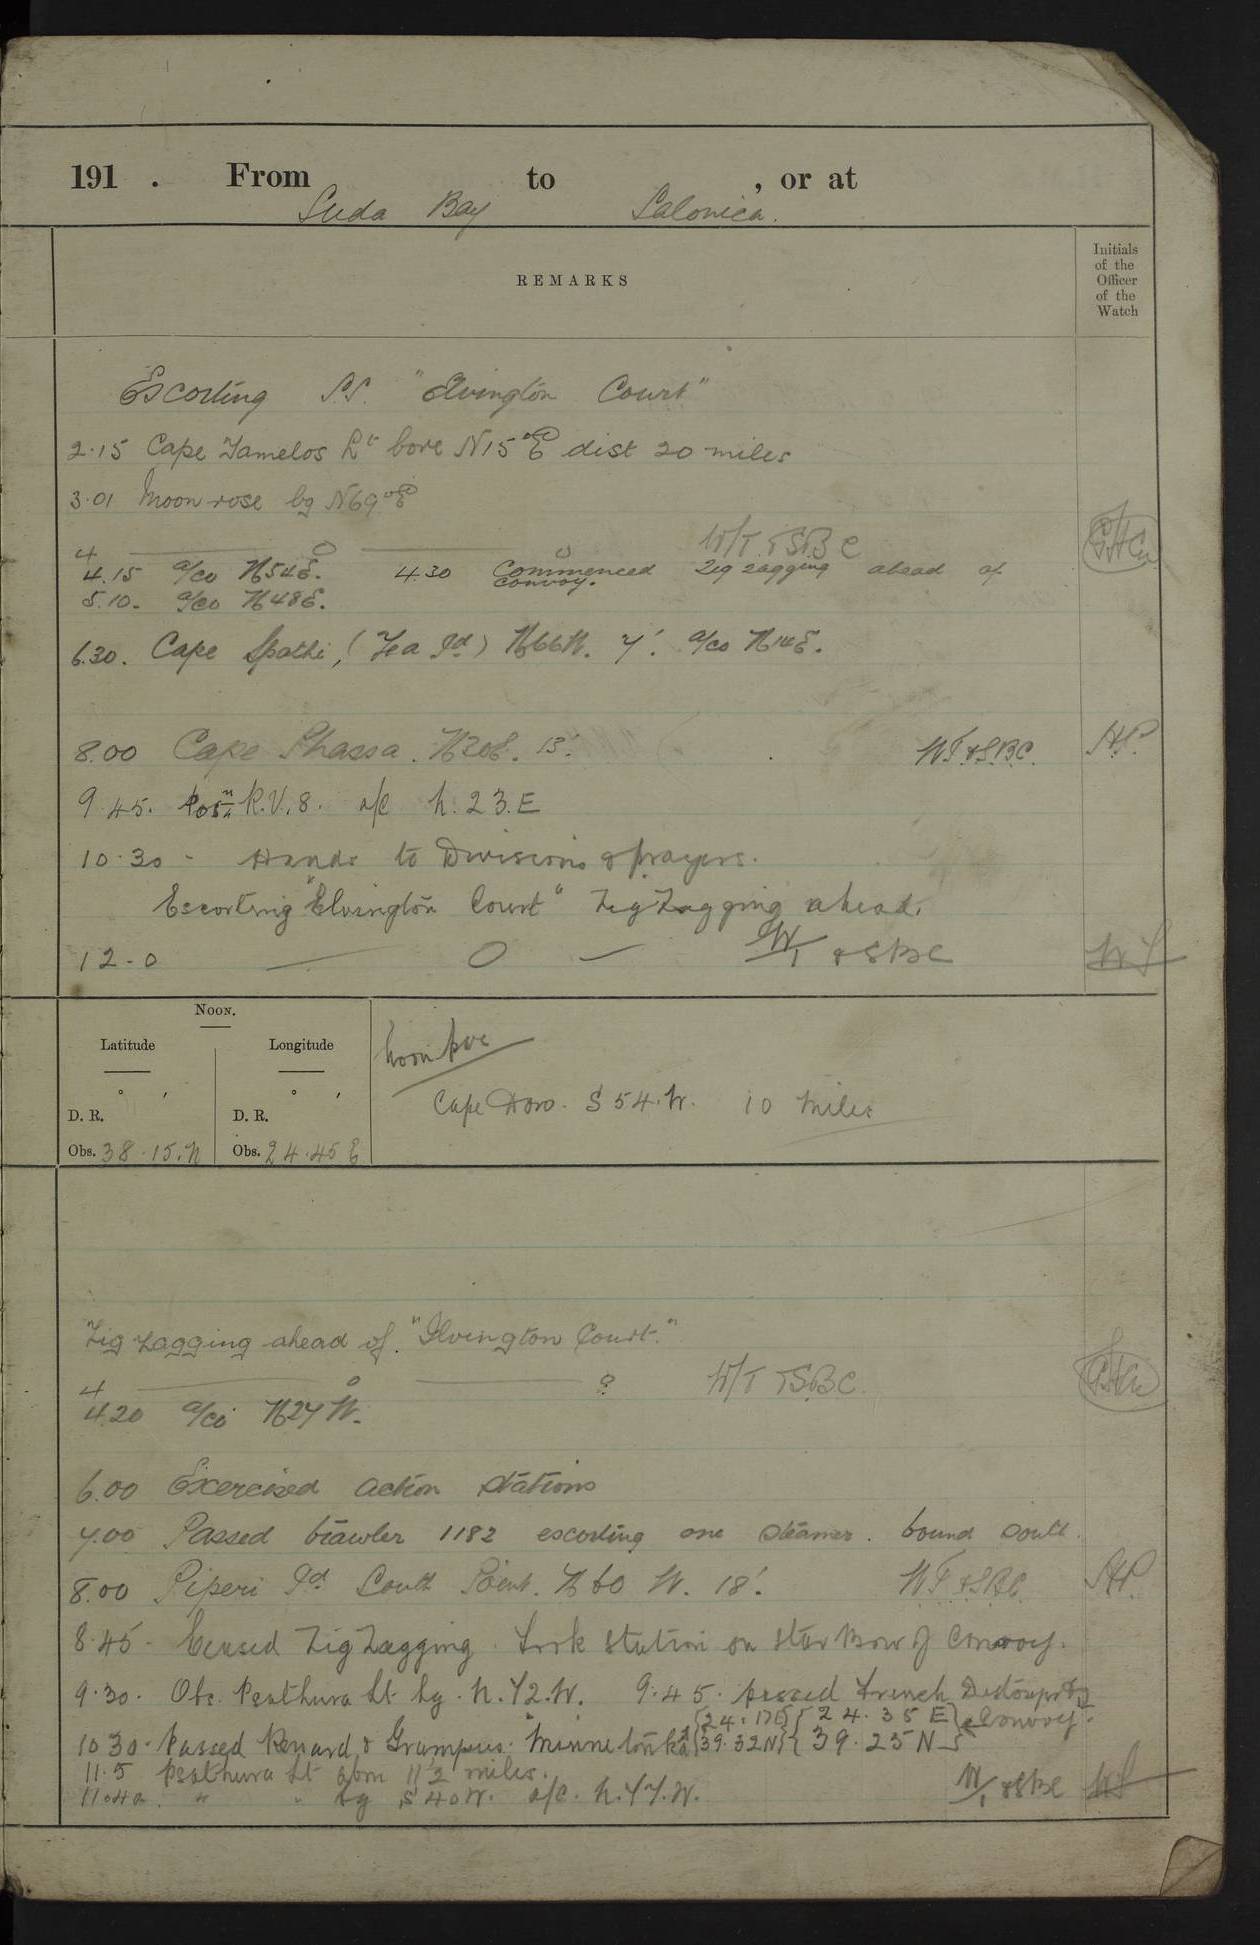 191 . From Suda Bay to Salonica. , or at
REMARKS
Initials of the Officer of the Watch
Escorting S.S. "Elvington Court"
2.15 Cape Tamelos Lt bore N15°E dist 20 miles
3.01 Moon rose bg N69°E
4 W/T & SBC
4.15 a/co N54E. 4.30 Commenced Zig zagging ahead of
convoy.
5.10. a/co N48E.
6.30. Cape Spathi, (Zea Id) N66W. 7'. a/co N14E.
8.00 Cape Phassa. N20E. 13'. WT & SBC. HP.
9.45. Posn R.V.8. a/c N.23.E
10.30 - Hands to Divisions & prayers.
Escorting "Elvington Court" Zig Zagging ahead.
12-0 W/T & SBC
NOON.
Latitude Longitude
° ' ° '
D. R. D. R.
Obs. 38.15.N Obs. 24.45 E
Noon pos
Cape Doro. S 54.W. 10 miles
Zig zagging ahead of "Elvington Court."
4 W/T & SBC
4.20 a/co N27W.
6.00 Exercised action stations
7.00 Passed trawler 1182 escorting one steamer. bound South.
8.00 Piperi Id South Point. N60 W. 18'. WT & SBC. HP.
8.45 - Ceased Zig Zagging. Took station on star Bow of Convoy.
9.30. Obs. Psathura Lt bg. N.72.W. 9.45. passed French
{24.17E} {24.35E} & Convoy.
10 30. Passed Renard & Grampus. Minnetonka {39.32N} {39.25N}
11.5 Psathura Lt abm 11½ miles.
11.40 " " bg S 40 W. a/c. N.77.W. W/T & SBC